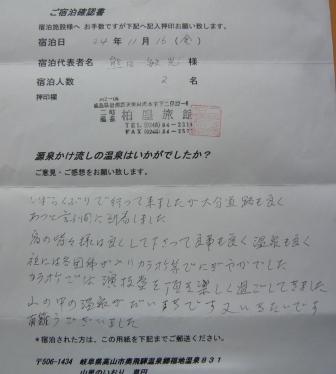 ご宿泊確認書
宿泊施設様へ お手数ですが下記へ記入押印お願い致します。
宿泊日 24年11月16(金)
宿泊代表者名 熊谷 様
宿泊人数 2 名
押印欄
柏屋旅館
TEL(0248)84-2316
FAX(0248)84-
源泉かけ流しの温泉はいかがでしたか？
ご意見・ご感想をお願い致します。
しばらくぶりで行って来ましたが大分道路も良く
あっと言う間に到着しました
宿の皆々様は良くして下さって食事も良く温泉も良く
夜には各団体が入りカラオケ等でにぎやかでした
カラオケでは 頂き楽しく過ごしてきました
山の中の温泉が 又いきたいです
有難うございました
*宿泊された方は、この用紙を下記までご郵送ください。
〒506-1434 岐阜県高山市奥飛騨温泉郷福地温泉831
山里のいおり 草円